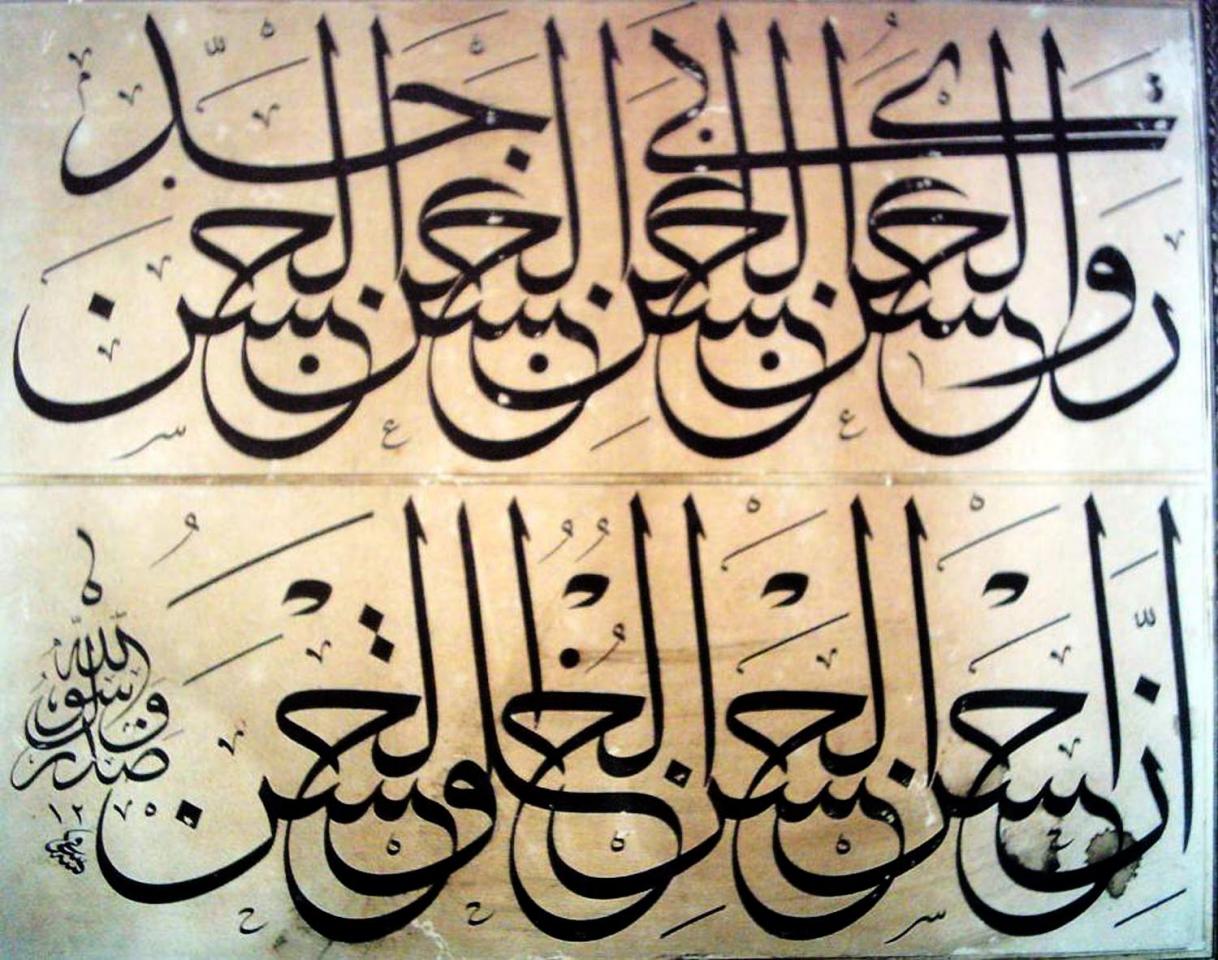 روى الحسن عن الحسن عن ابي الحسن عن جد الحسن
ان احسن الحسن الخلق الحسن
صدق رسول الله